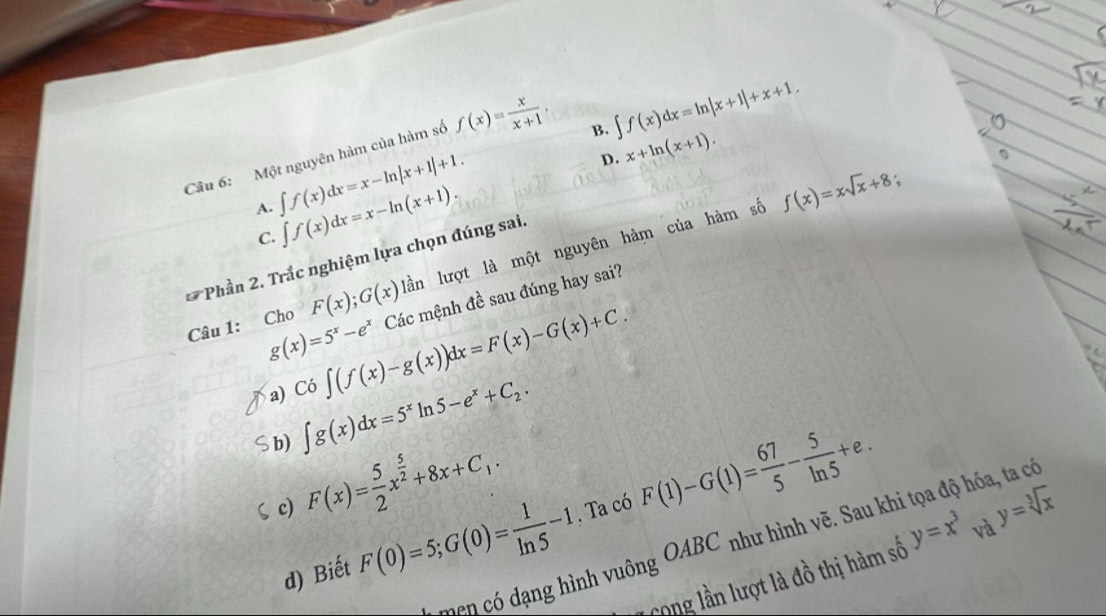 Câu 6: Một nguyên hàm của hàm số f(x) = x/(x+1).
A. ∫f(x)dx = x − ln|x+1| + 1.
B. ∫f(x)dx = ln|x+1| + x + 1.
C. ∫f(x)dx = x − ln(x+1).
D. x + ln(x+1).
☞Phần 2. Trắc nghiệm lựa chọn đúng sai.
Câu 1: Cho F(x);G(x) lần lượt là một nguyên hàm của hàm số f(x) = x√x + 8;
g(x) = 5^x − e^x Các mệnh đề sau đúng hay sai?
a) Có ∫(f(x) − g(x))dx = F(x) − G(x) + C.
S b) ∫g(x)dx = 5^x ln 5 − e^x + C₂.
S c) F(x) = 5/2 x^(5/2) + 8x + C₁.
d) Biết F(0) = 5; G(0) = 1/ln 5 − 1. Ta có F(1) − G(1) = 67/5 − 5/ln 5 + e.
men có dạng hình vuông OABC như hình vẽ. Sau khi tọa độ hóa, ta có
cong lần lượt là đồ thị hàm số y = x³ và y = ∛x